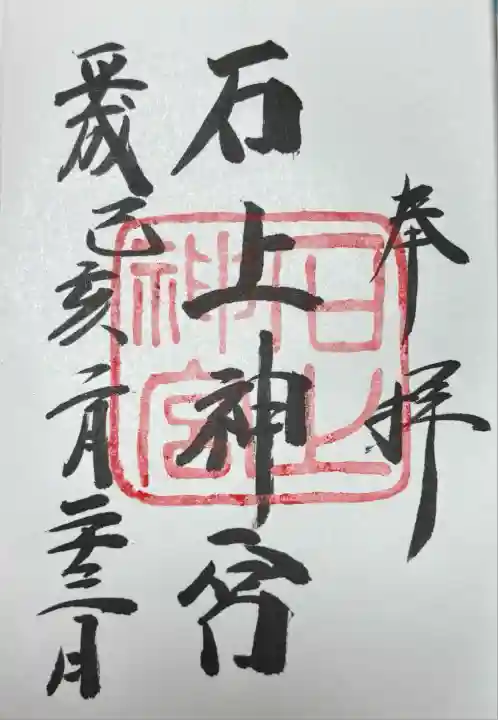 奉拝
石上神宮
石上
神宮
平成己亥二月二十三日